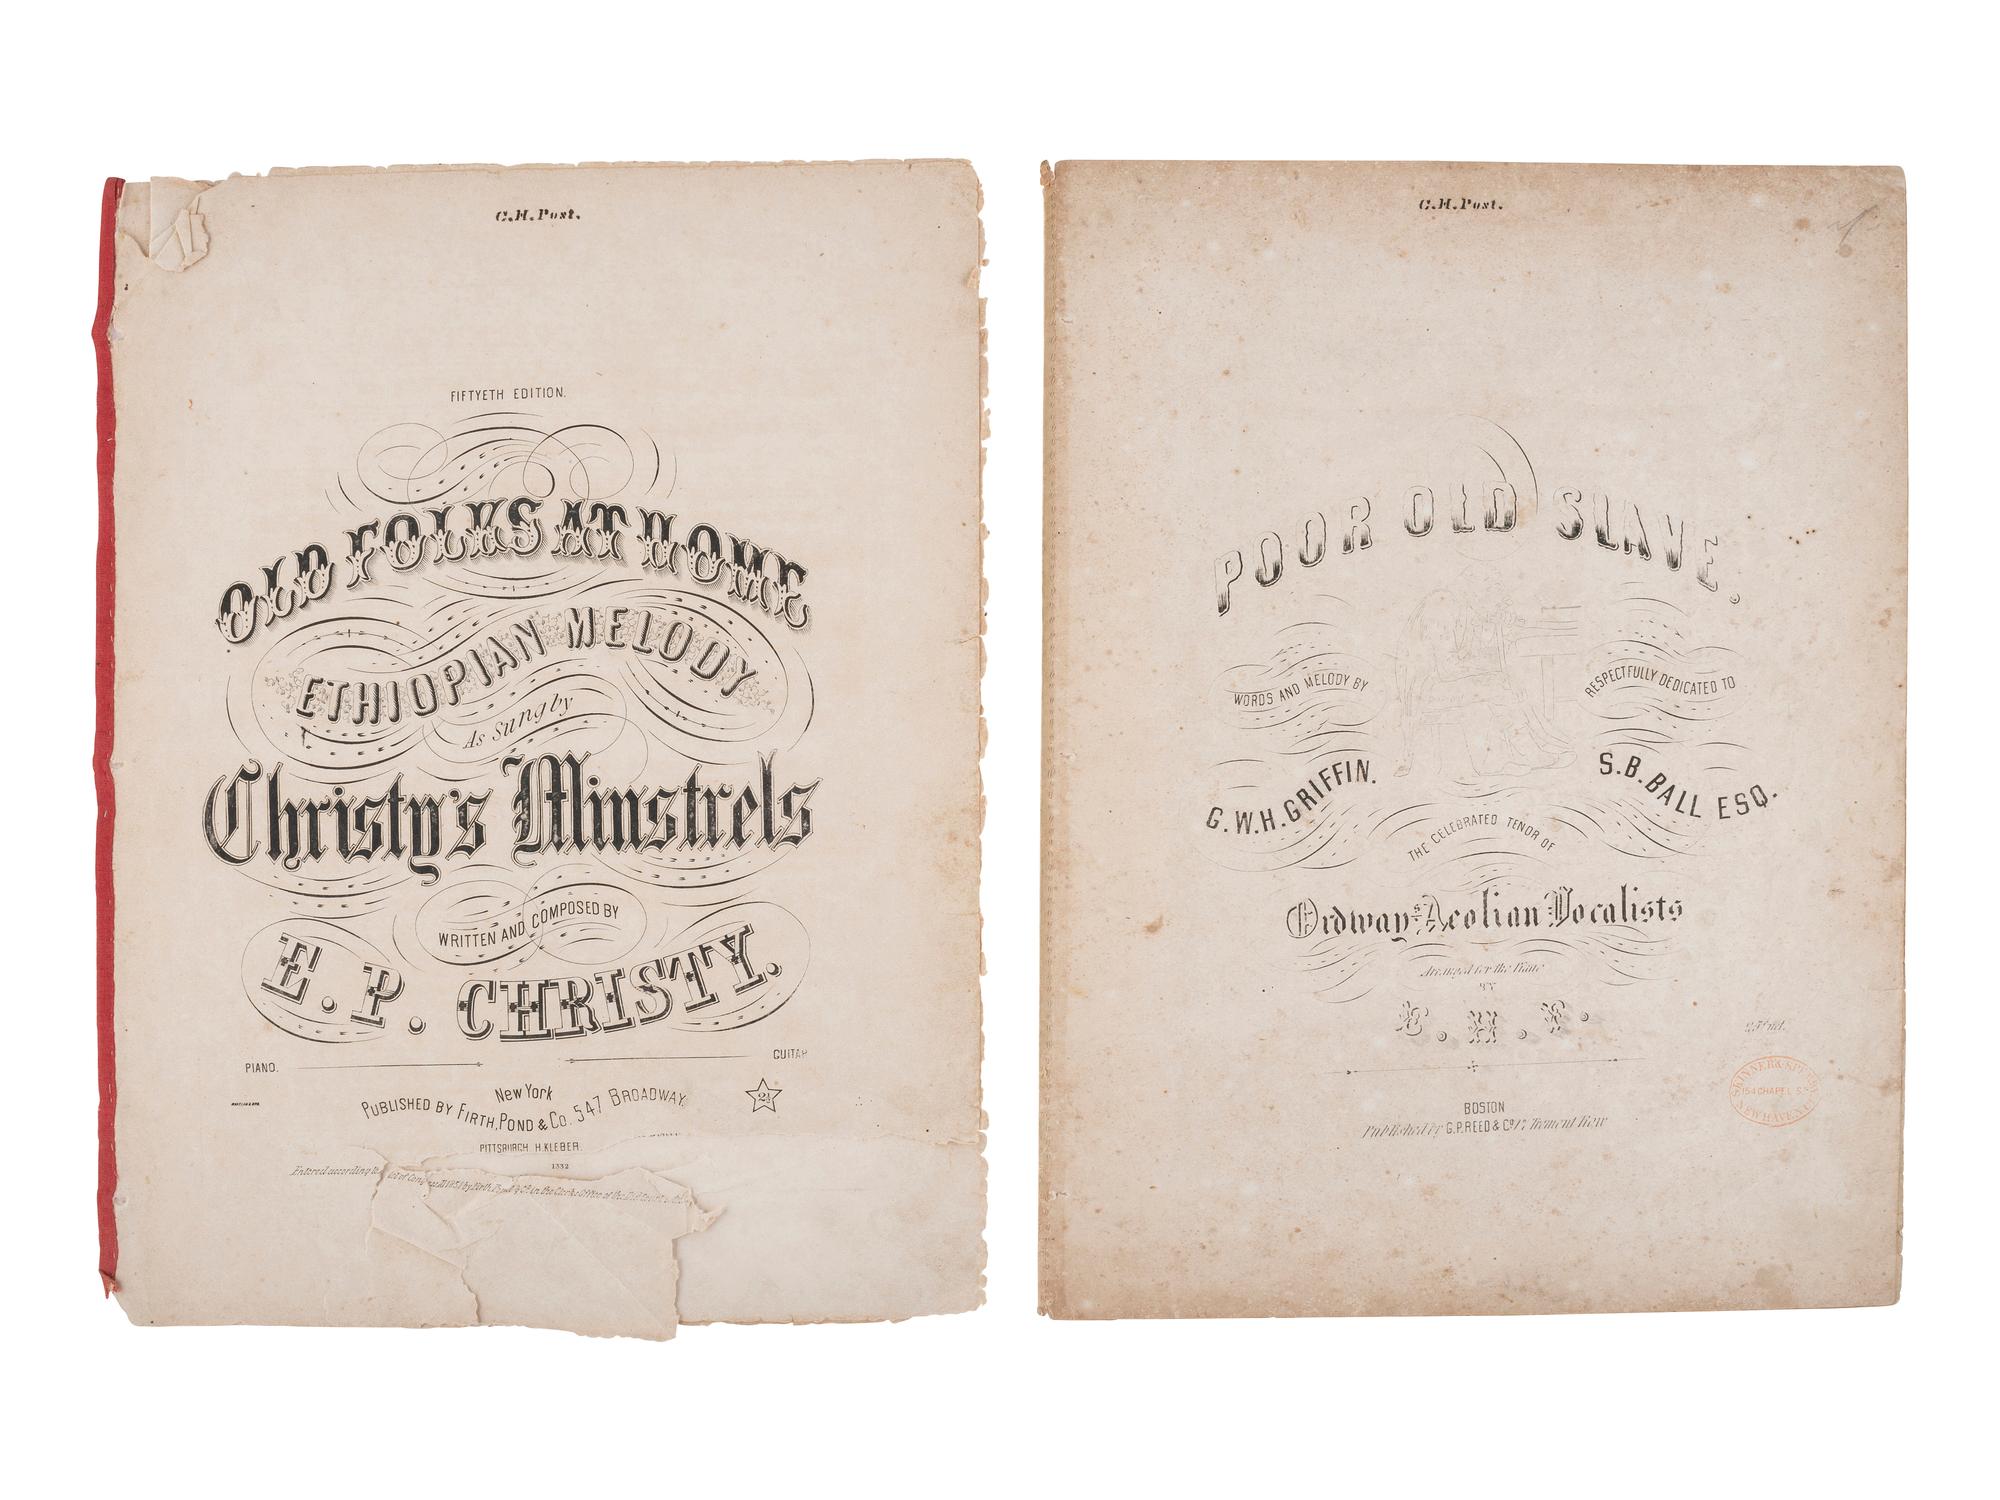 C.H.Post.
FIFTYETH EDITION.
OLD FOLKS AT HOME
ETHIOPIAN MELODY
As Sung by
Christy's Minstrels
WRITTEN AND COMPOSED BY
E. P. CHRISTY.
PIANO. GUITAR
New York
PUBLISHED BY FIRTH, POND & Co. 547 BROADWAY.
2½
PITTSBURGH H. KLEBER.
1332
Entered according to Act of Congress 1851 by Firth Pond & Co. in the Clerks Office of the Dist Court
C.H.Post.
POOR OLD SLAVE.
WORDS AND MELODY BY
G.W.H. GRIFFIN.
RESPECTFULLY DEDICATED TO
S.B. BALL ESQ.
THE CELEBRATED TENOR OF
Ordway's Aeolian Vocalists
Arranged for the Piano
BY
25cts net.
BOSTON
Published by G.P. REED & Co. 17 Tremont Row
SKINNER & SPERRY
154 CHAPEL ST
NEW HAVEN